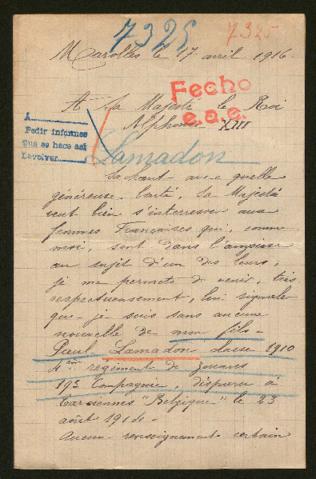 7325 7325
Marolles le 17 avril 1916.
Fecho
e.a.e.
A Sa Majesté le Roi
Alphonse XIII
A
Pedir informes
Que se hace así
Devolver
Lamadon
Sachant avec quelle
généreuse bonté, Sa Majesté
veut bien s'interresser aux
femmes Françaises qui, comme
moi, sont dans l'angoisse
au sujet d'un des leurs,
je me permets de venir, très
respectueusement, lui signaler
que je suis sans aucune
nouvelle de mon fils -
Paul Lamadon classe 1910
4me régiment de Zouaves
19e Compagnie, disparu à
Tarciennes "Belgique" le 23
août 1914.
Aucun renseignement certain